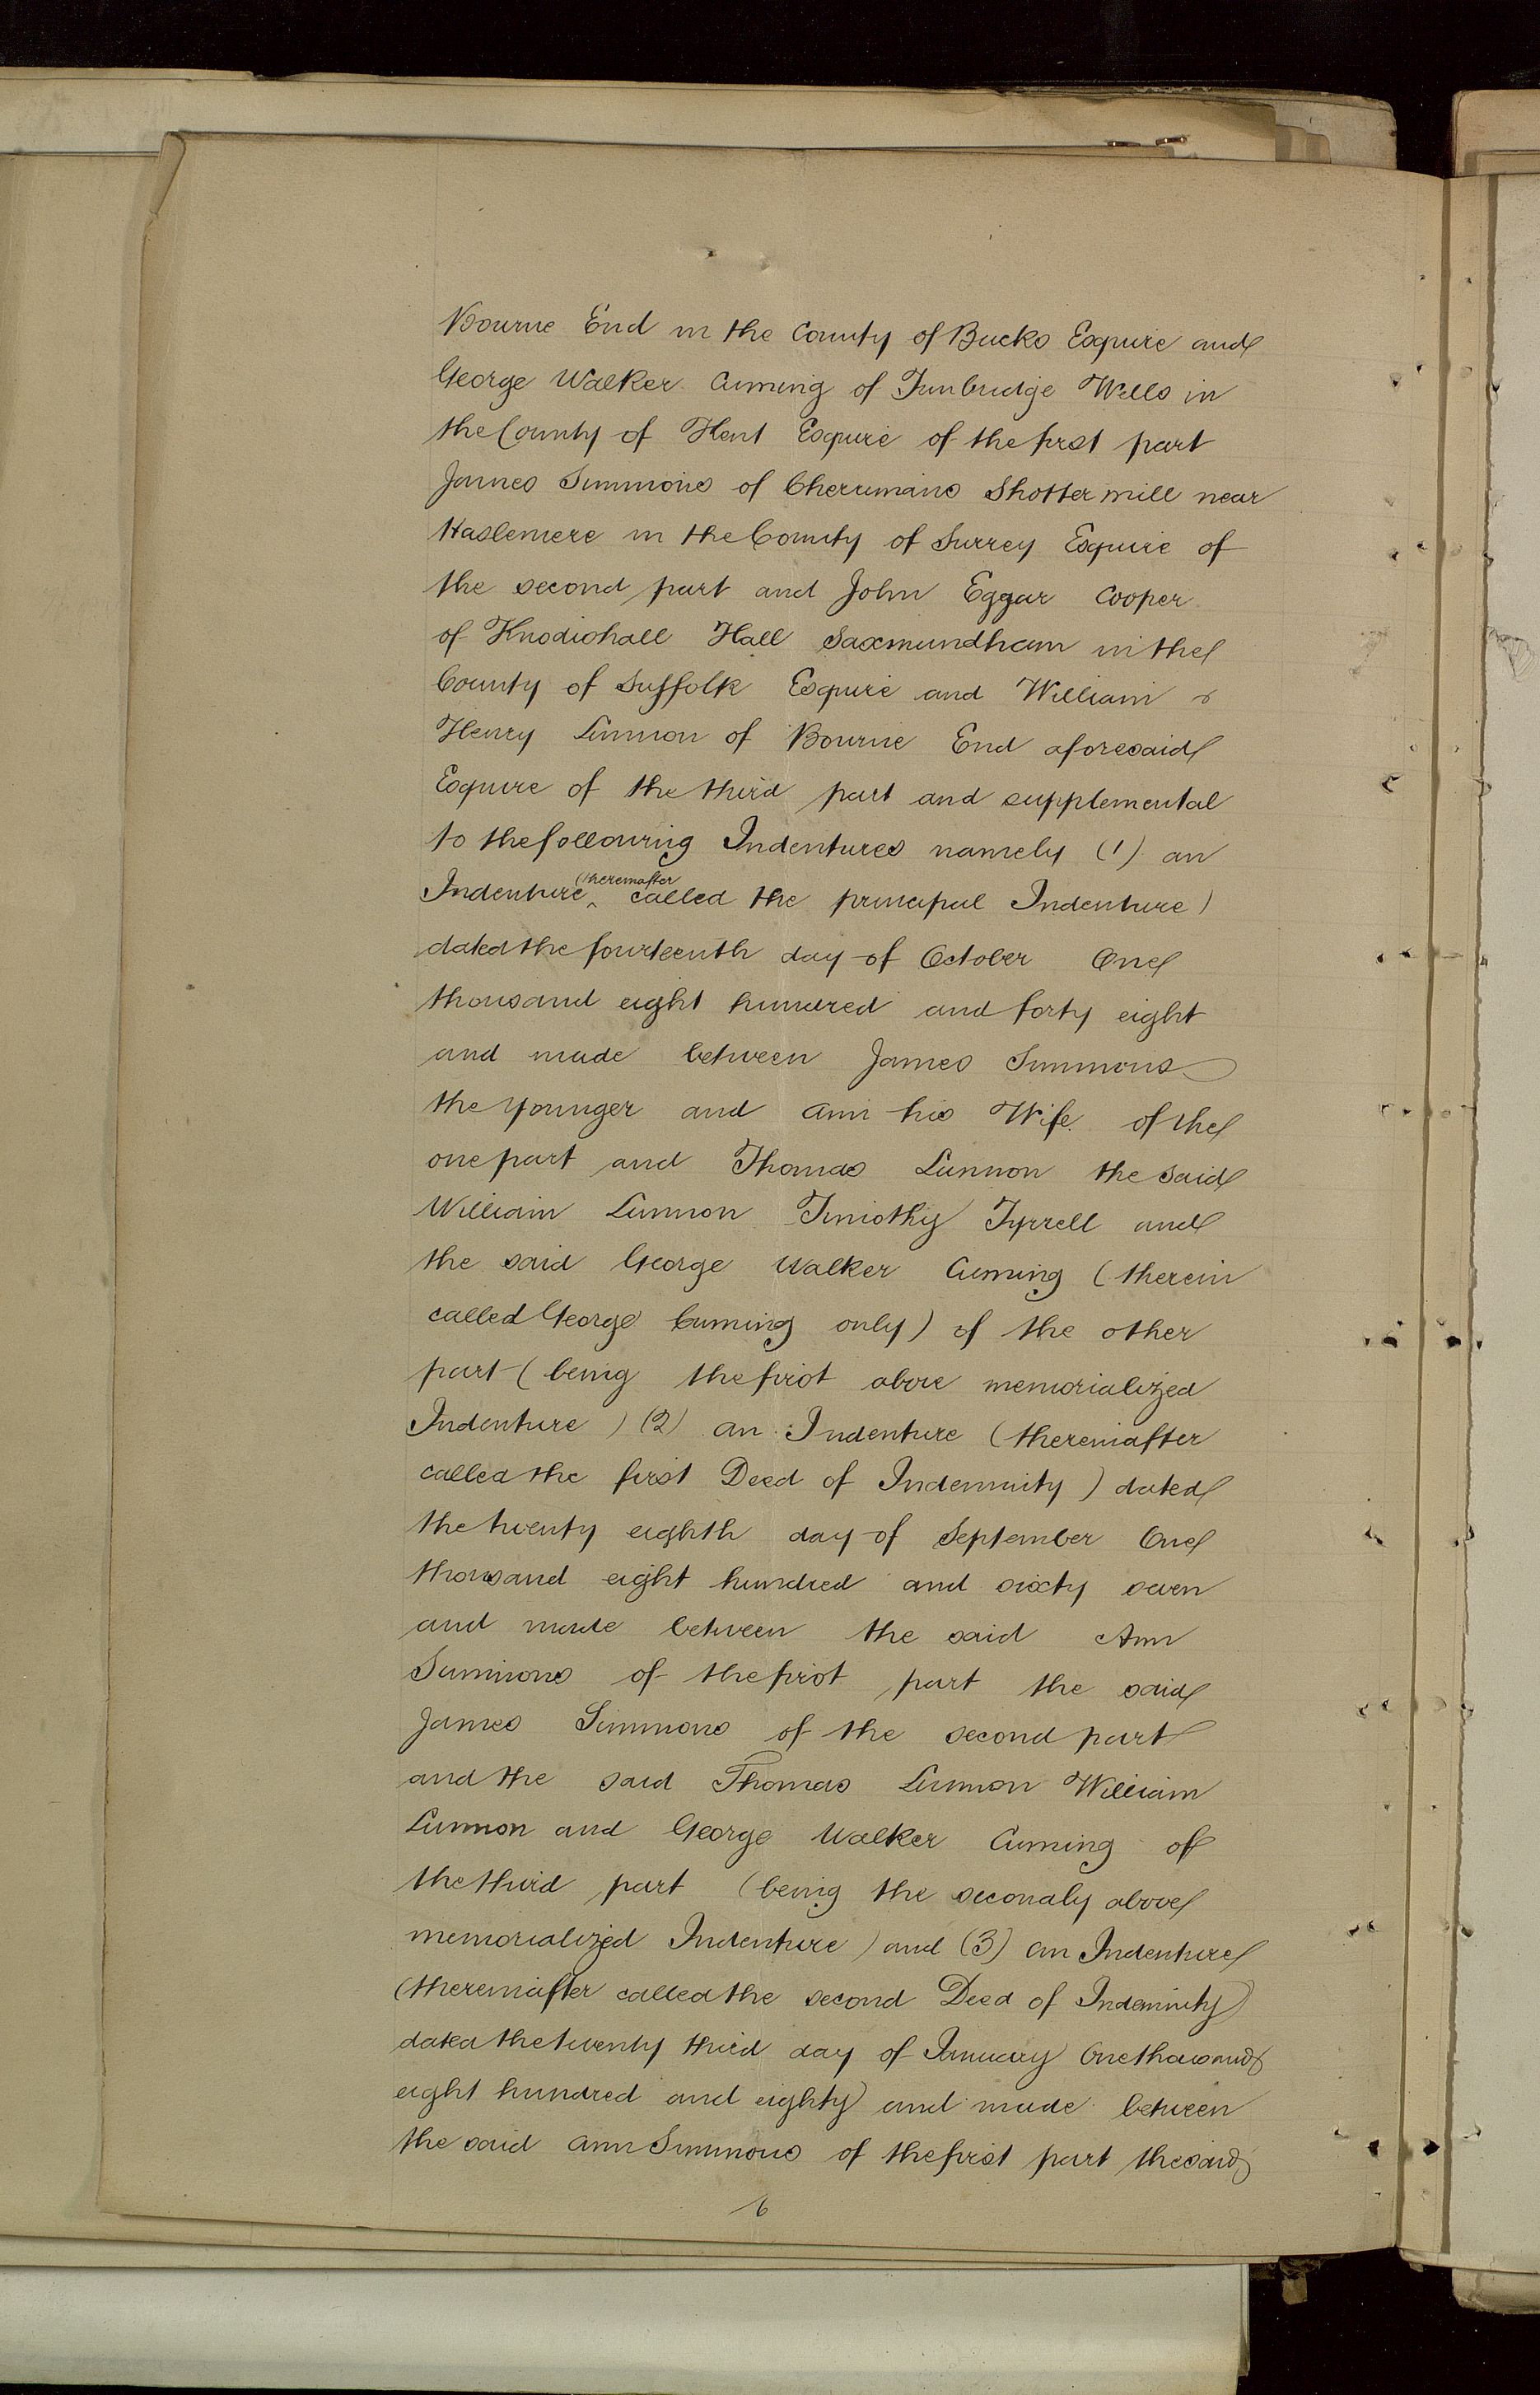 Bourne End in the County of Bucks Esquire and
George Walker Cuming of Tunbridge Wells in
the County of Kent Esquire of the first part
James Simmons of Cherrimans Shotter mill near
Haslemere in the County of Surrey Esquire of
the second part and John Eggar Cooper
of Knodishall Hall Saxmundham in the
County of Suffolk Esquire and William
Henry Lunnon of Bourne End aforesaid
Esquire of the third part and supplemental
to the following Indentures namely (1) an
Indenture (thereinafter called the principal Indenture)
dated the fourteenth day of October One
thousand eight hundred and forty eight
and made between James Simmons
the younger and Ann his Wife of the
one part and Thomas Lunnon the said
William Lunnon Timothy Tyrrell and
the said George Walker Cuming (therein
called George Cuming only) of the other
part (being the first above memorialized
Indenture) (2) an Indenture (thereinafter
called the first Deed of Indemnity) dated
the twenty eighth day of September One
thousand eight hundred and sixty seven
and made between the said Ann
Simmons of the first part the said
James Simmons of the second part
and the said Thomas Lunnon William
Lunnon and George Walker Cuming of
the third part (being the secondly above
memorialized Indenture) and (3) an Indenture
(thereinafter called the second Deed of Indemnity)
dated the twenty third day of January One thousand
eight hundred and eighty and made between
the said Ann Simmons of the first part the said
6